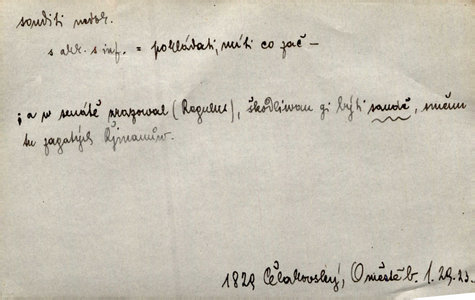 souditi nedok.
s akk. s inf. = pokládati, míti co zač —
; a w senátě prazowal (Regulus), škodliwau gi býti saudě, směnu
tu zagatých Římanůw.
1829 Čelakovský, O městě b. 1. 29. 23.